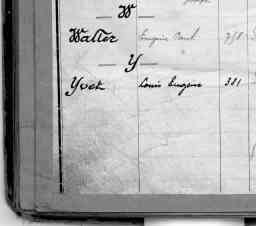 — W —
Walter Eugène Paul 718
— Y —
Yvock Louis Eugene 381